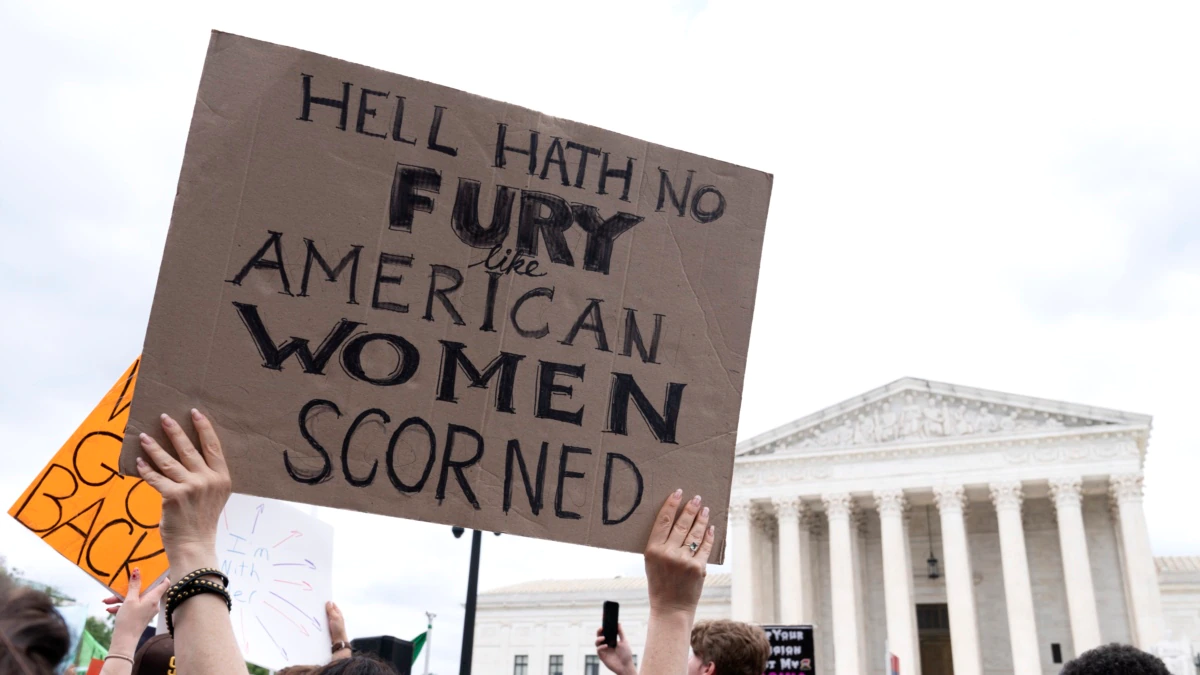 HELL HATH NO
FURY
like
AMERICAN
WOMEN
SCORNED
GO
BACK
I'm
With